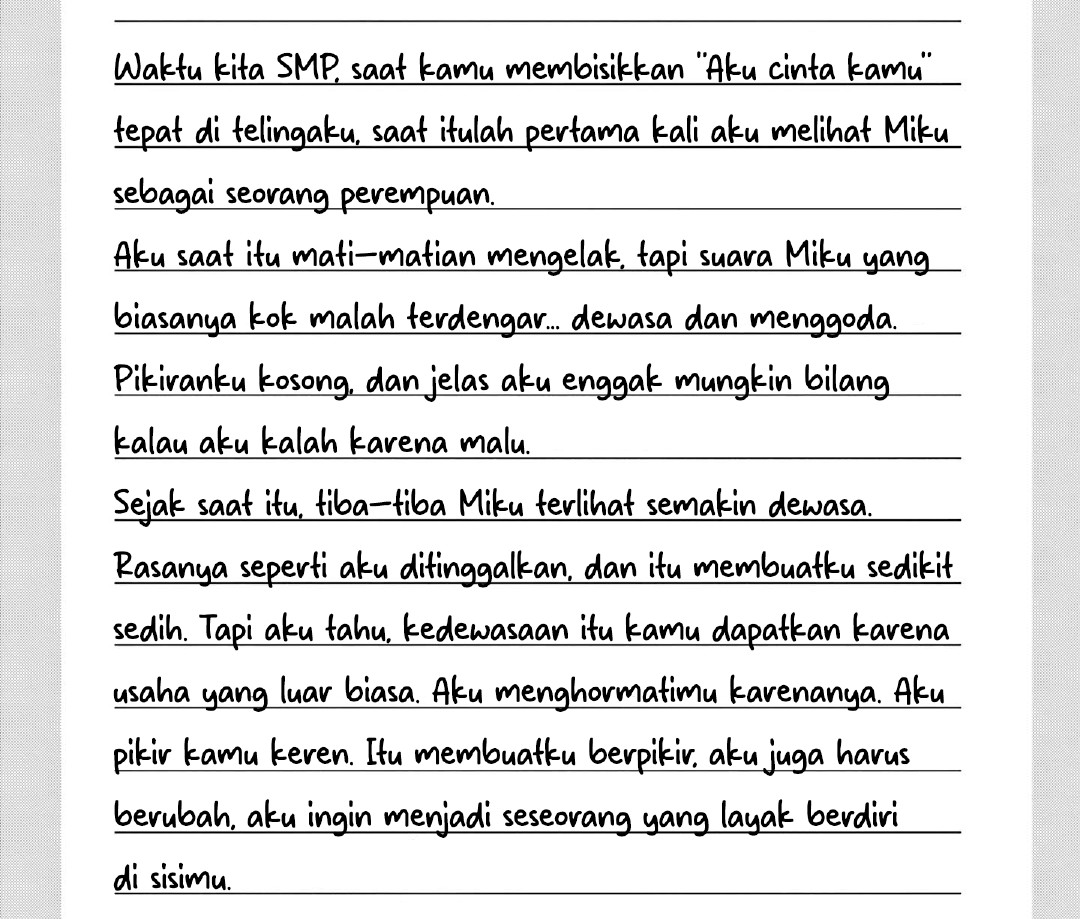 Waktu kita SMP, saat kamu membisikkan "Aku cinta kamu"
tepat di telingaku, saat itulah pertama kali aku melihat Miku
sebagai seorang perempuan.
Aku saat itu mati-matian mengelak, tapi suara Miku yang
biasanya kok malah terdengar... dewasa dan menggoda.
Pikiranku kosong, dan jelas aku enggak mungkin bilang
kalau aku kalah karena malu.
Sejak saat itu, tiba-tiba Miku terlihat semakin dewasa.
Rasanya seperti aku ditinggalkan, dan itu membuatku sedikit
sedih. Tapi aku tahu, kedewasaan itu kamu dapatkan karena
usaha yang luar biasa. Aku menghormatimu karenanya. Aku
pikir kamu keren. Itu membuatku berpikir, aku juga harus
berubah, aku ingin menjadi seseorang yang layak berdiri
di sisimu.